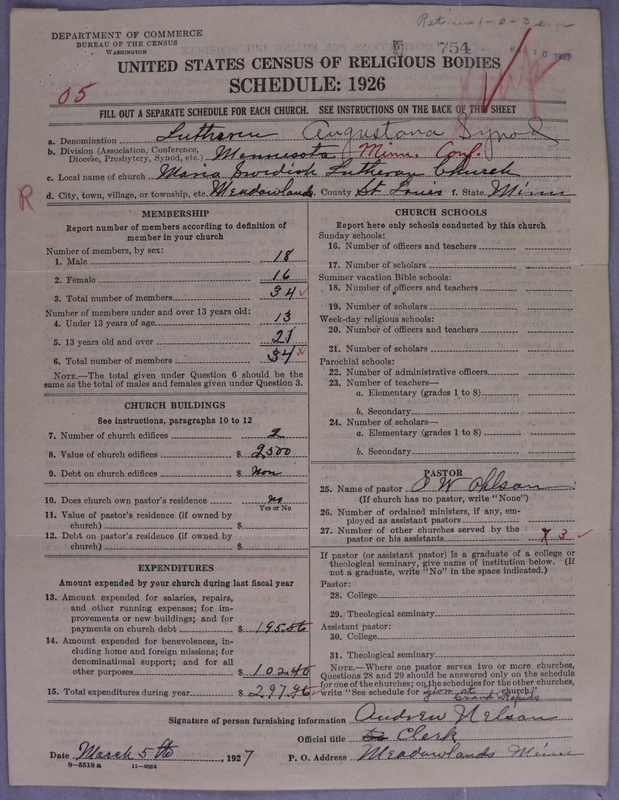 DEPARTMENT OF COMMERCE
BUREAU OF THE CENSUS
WASHINGTON
754
UNITED STATES CENSUS OF RELIGIOUS BODIES
SCHEDULE: 1926
05
FILL OUT A SEPARATE SCHEDULE FOR EACH CHURCH. SEE INSTRUCTIONS ON THE BACK OF THIS SHEET
a. Denomination Lutheran Augustana Synod
b. Division (Association, Conference, Diocese, Presbytery, Synod, etc.) Minnesota Minn. Conf.
c. Local name of church Maria Swedish Lutheran Church
R
d. City, town, village, or township, etc. Meadowlands e. County St Louis f. State Minn
MEMBERSHIP
Report number of members according to definition of member in your church
Number of members, by sex:
1. Male 18
2. Female 16
3. Total number of members 34
Number of members under and over 13 years old:
4. Under 13 years of age 13
5. 13 years old and over 21
6. Total number of members 34
NOTE.—The total given under Question 6 should be the same as the total of males and females given under Question 3.
CHURCH BUILDINGS
See instructions, paragraphs 10 to 12
7. Number of church edifices 2
8. Value of church edifices $ 2500
9. Debt on church edifices $ Non
10. Does church own pastor's residence no
Yes or No
11. Value of pastor's residence (if owned by church) $
12. Debt on pastor's residence (if owned by church) $
EXPENDITURES
Amount expended by your church during last fiscal year
13. Amount expended for salaries, repairs, and other running expenses; for improvements or new buildings; and for payments on church debt $ 195.56
14. Amount expended for benevolences, including home and foreign missions; for denominational support; and for all other purposes $ 102.40
15. Total expenditures during year $ 297.96
CHURCH SCHOOLS
Report here only schools conducted by this church
Sunday schools:
16. Number of officers and teachers
17. Number of scholars
Summer vacation Bible schools:
18. Number of officers and teachers
19. Number of scholars
Week-day religious schools:
20. Number of officers and teachers
21. Number of scholars
Parochial schools:
22. Number of administrative officers
23. Number of teachers—
a. Elementary (grades 1 to 8)
b. Secondary
24. Number of scholars—
a. Elementary (grades 1 to 8)
b. Secondary
PASTOR
25. Name of pastor P W Ohlson
(If church has no pastor, write "None")
26. Number of ordained ministers, if any, employed as assistant pastors
27. Number of other churches served by the pastor or his assistants 3
If pastor (or assistant pastor) is a graduate of a college or theological seminary, give name of institution below. (If not a graduate, write "No" in the space indicated.)
Pastor:
28. College
29. Theological seminary
Assistant pastor:
30. College
31. Theological seminary
NOTE.—Where one pastor serves two or more churches, Questions 28 and 29 should be answered only on the schedule for one of the churches; on the schedules for the other churches, write "See schedule for given at Grand Rapids church."
Signature of person furnishing information Andrew Nelson
Official title Clerk
Date March 5th, 1927
P. O. Address Meadowlands Minn
8—5518 a 11—9054